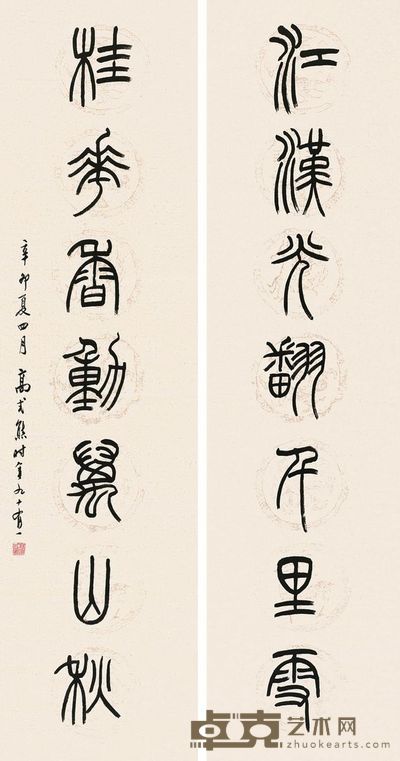 江漢光翻千里雪
桂花香動萬山秋
辛卯夏四月高式熊時年九十有一
卓克艺术网
www.zhuokearts.com